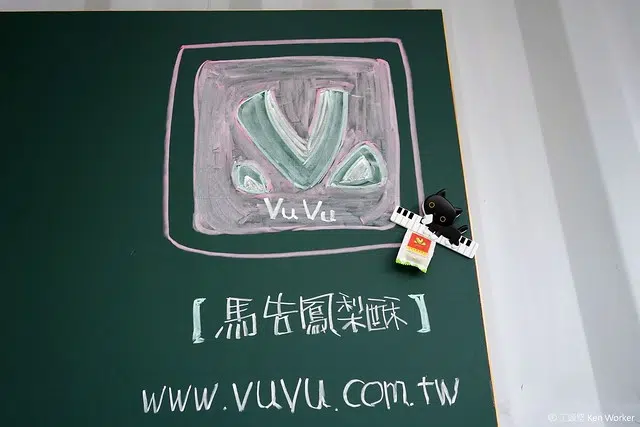 VuVu
【馬告鳳梨酥】
www.vuvu.com.tw
Ken Worker